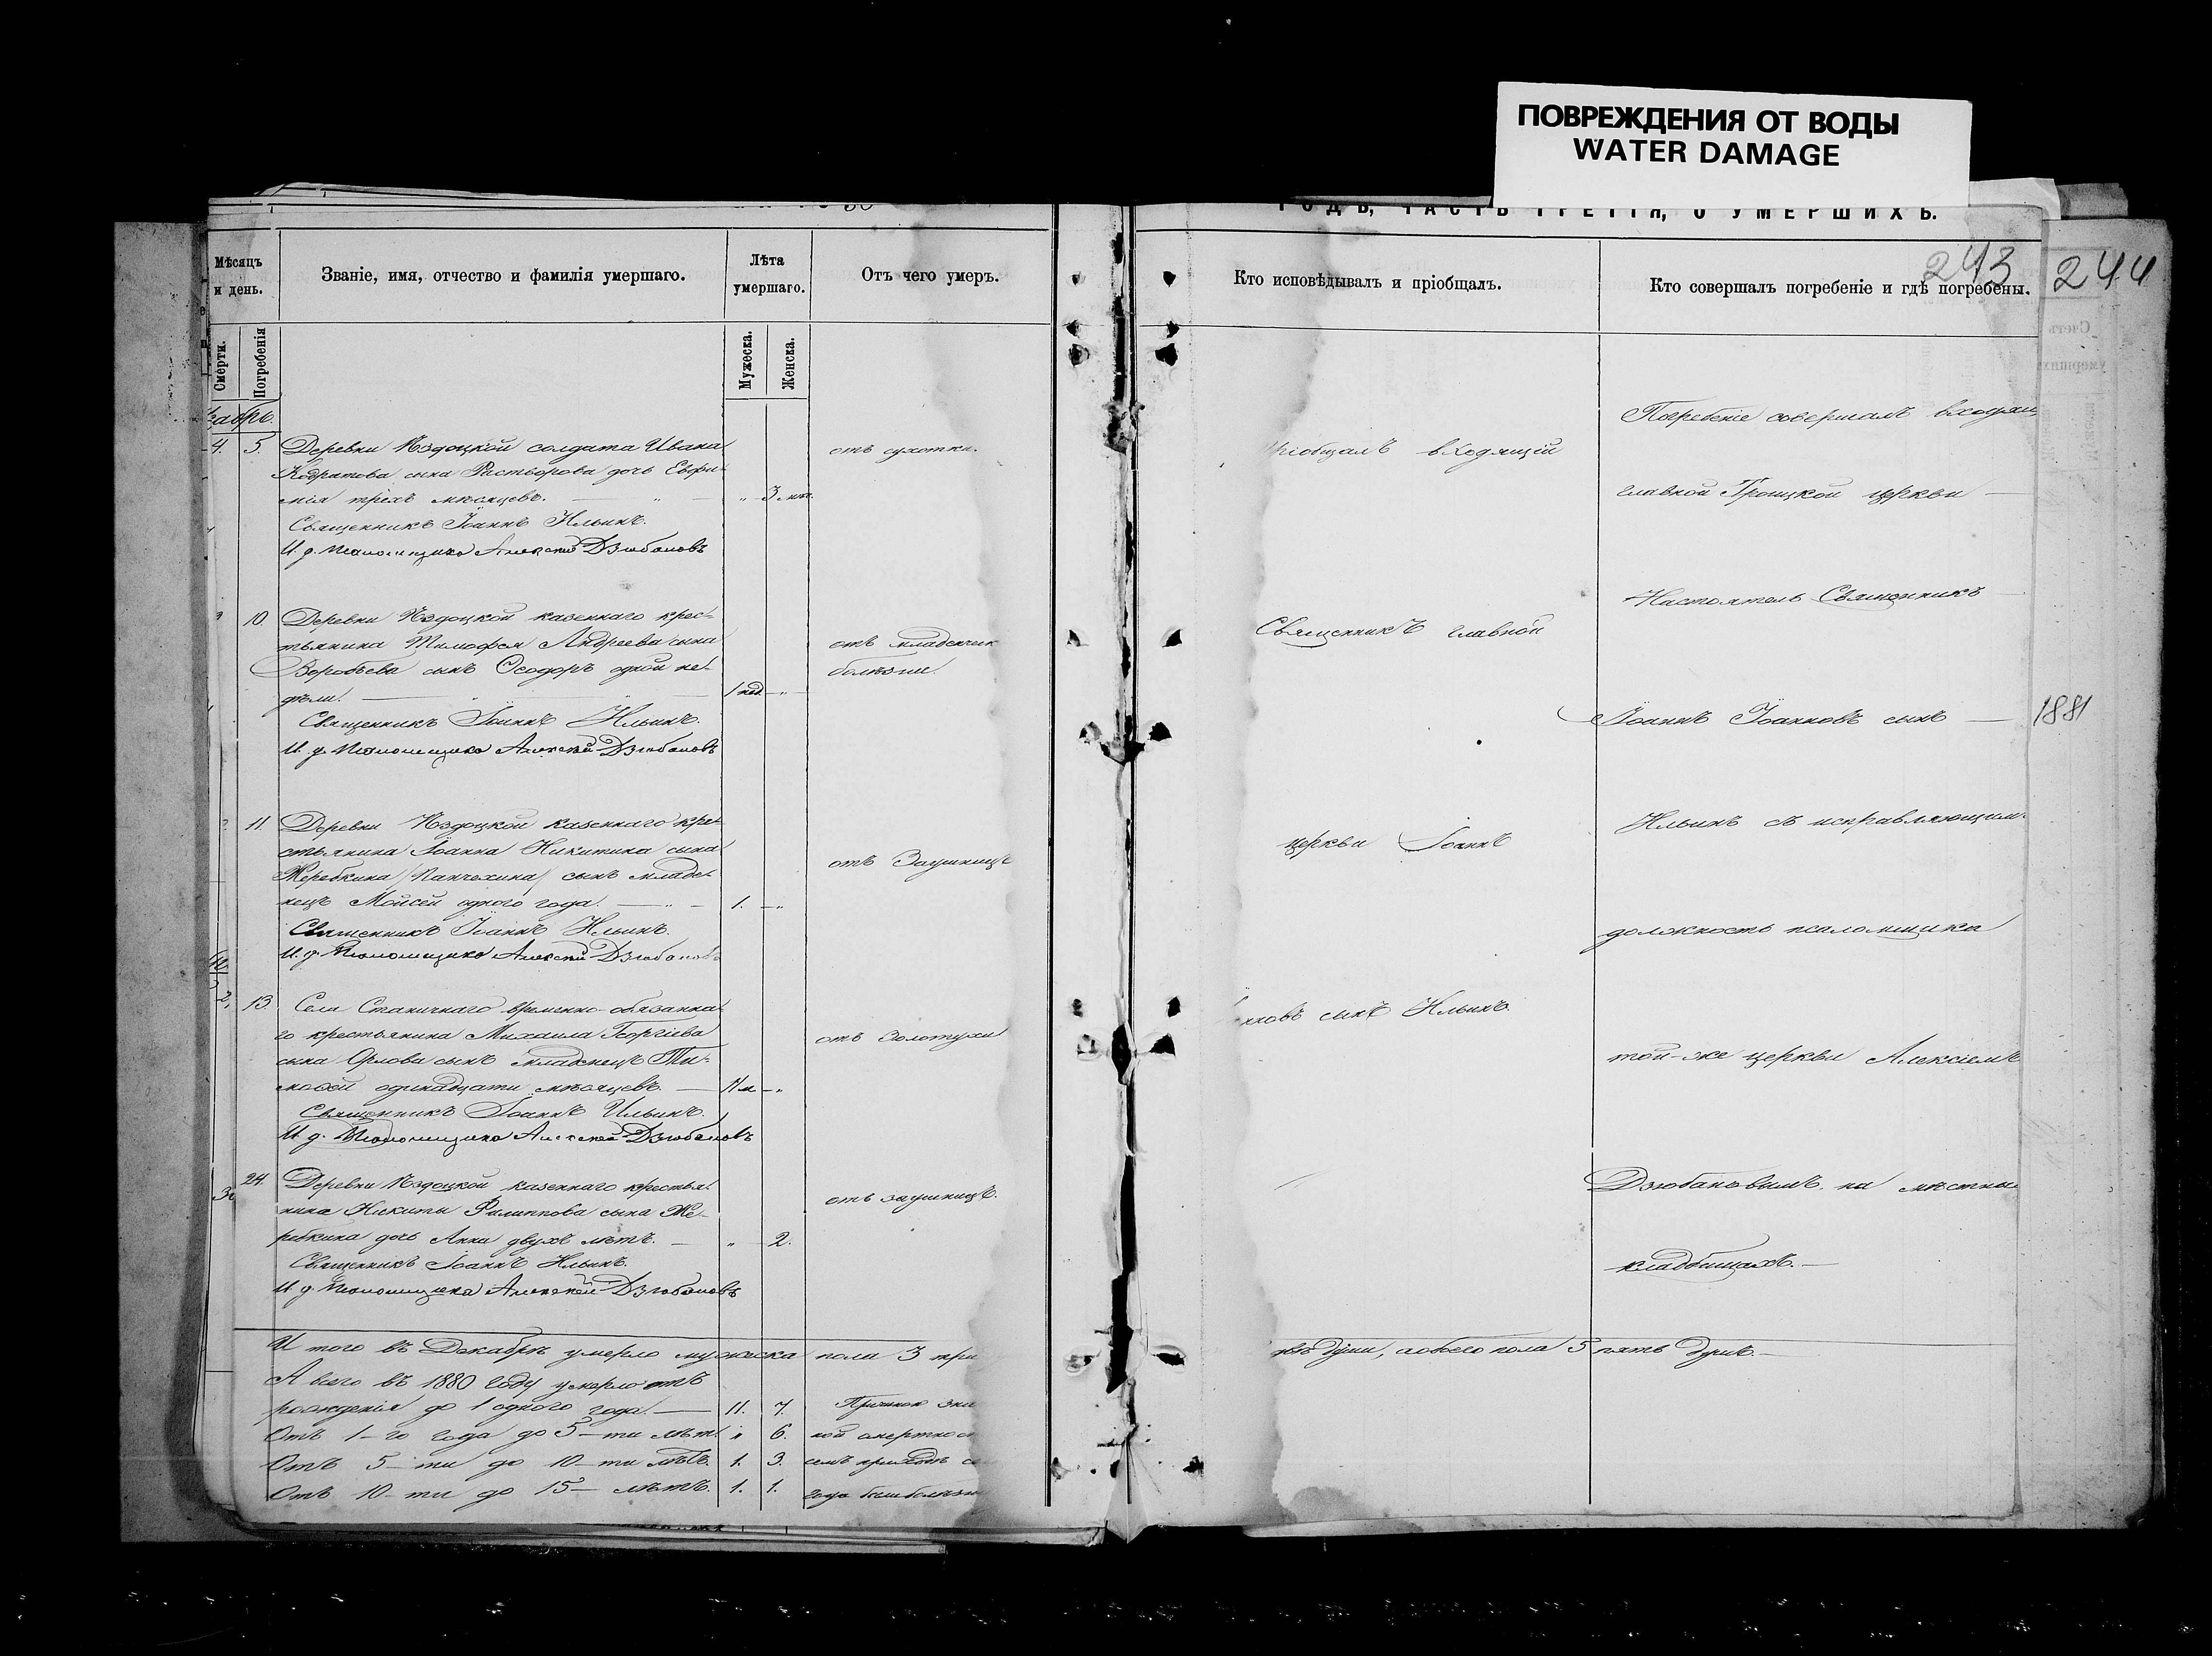 ПОВРЕЖДЕНИЯ ОТ ВОДЫ
WATER DAMAGE
ГОДЪ, ЧАСТЬ ТРЕТІЯ, О УМЕРШИХЪ.
243
244
Мѣсяцъ и день.
Званіе, имя, отчество и фамилія умершаго.
Лѣта умершаго.
Отъ чего умеръ.
Кто исповѣдывалъ и пріобщалъ.
Кто совершалъ погребеніе и гдѣ погребены.
Смерти.
Погребенія
Мужеска.
Женска.
4. 5. Деревни солдата Ивана
сына Растворова дочь Евфи-
мія трехъ мѣсяцевъ. 3 мѣс.
отъ сухотки.
Священникъ Іоаннъ Ильинъ.
И. д. Псаломщика Алексѣй Дзюбановъ
10. Деревни казеннаго крес-
тьянина Тимофея Андреева сына
Воробьева сынъ Ѳеодоръ одной не-
дѣли. 1 нед.
отъ младенчек
болѣзни.
Священникъ Іоаннъ Ильинъ.
И. д. Псаломщика Алексѣй Дзюбановъ
11. Деревни казеннаго кре-
стьянина Іоанна Никитина сына
Жеребкина сынъ младе-
нецъ Моисей одного года. 1.
отъ Заушницы
Священникъ Іоаннъ Ильинъ.
И. д. Псаломщика Алексѣй Дзюбановъ
13. Села Станичнаго временно-обязанна-
го крестьянина Михаила Георгіева
сына Орлова сынъ младенецъ Ти-
моѳей одинадцати мѣсяцевъ. 11 м
отъ Золотухи
Священникъ Іоаннъ Ильинъ.
И. д. Псаломщика Алексѣй Дзюбановъ
24. Деревни казеннаго крестья-
нина Никиты Филиппова сына Же-
ребкина дочь Анна двухъ лѣтъ. 2.
отъ заушницъ.
Священникъ Іоаннъ Ильинъ.
И. д. Псаломщика Алексѣй Дзюбановъ
И того въ Декабрѣ умерло мужеска пола 3 три
А всего въ 1880 году умерло отъ
рожденія до 1 одного года. 11. 7.
Отъ 1-го года до 5-ти лѣтъ 6.
Отъ 5-ти до 10-ти лѣтъ. 1. 3.
Отъ 10-ти до 15- лѣтъ. 1. 1.
ной смертнос
пріобщалъ входящій
Священникъ главной
церкви Іоаннъ
сынъ Ильинъ.
Погребеніе совершалъ
главной Троицкой церкви
Настоятель Священникъ
Іоаннъ Іоанновъ сынъ
Ильинъ съ исправляющим
должность псаломщика
той-же церкви Алексіемъ
Дзюбановымъ на мѣстны
кладбищахъ.
двѣ души, а обоего пола 5 пять душъ.
1881